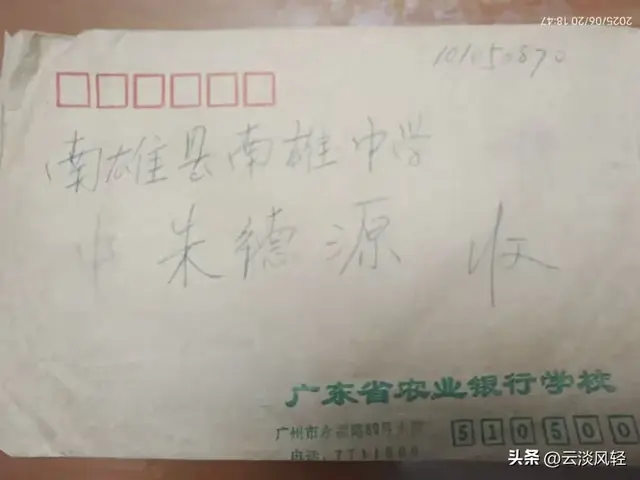 2025/06/20 18:47
101050870
南雄县南雄中学
朱德源 收
广东省农业银行学校
广州市永福路
510500
电话
头条 @云淡风轻